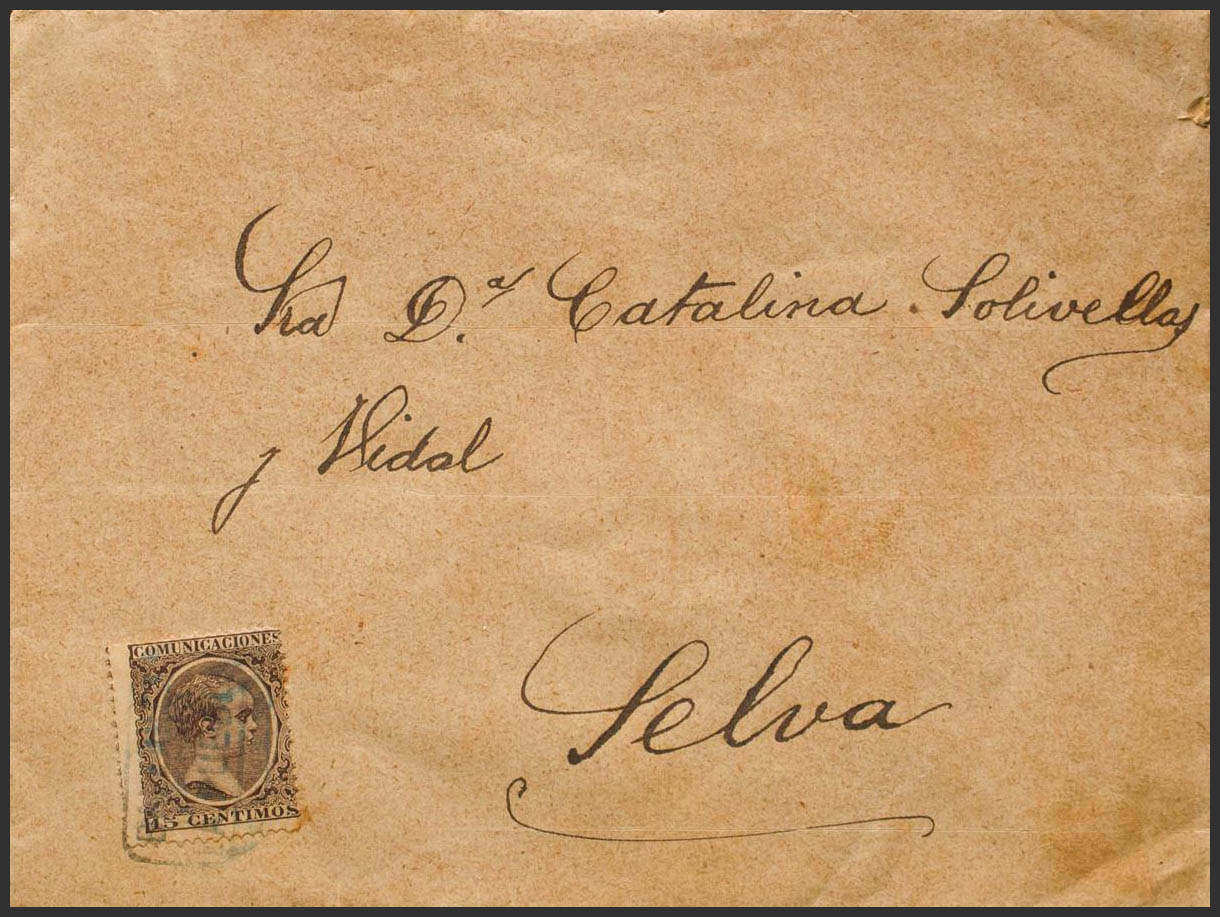 Sra D.ª Catalina Solivellas
y Vidal
Selva
COMUNICACIONES
15 CENTIMOS